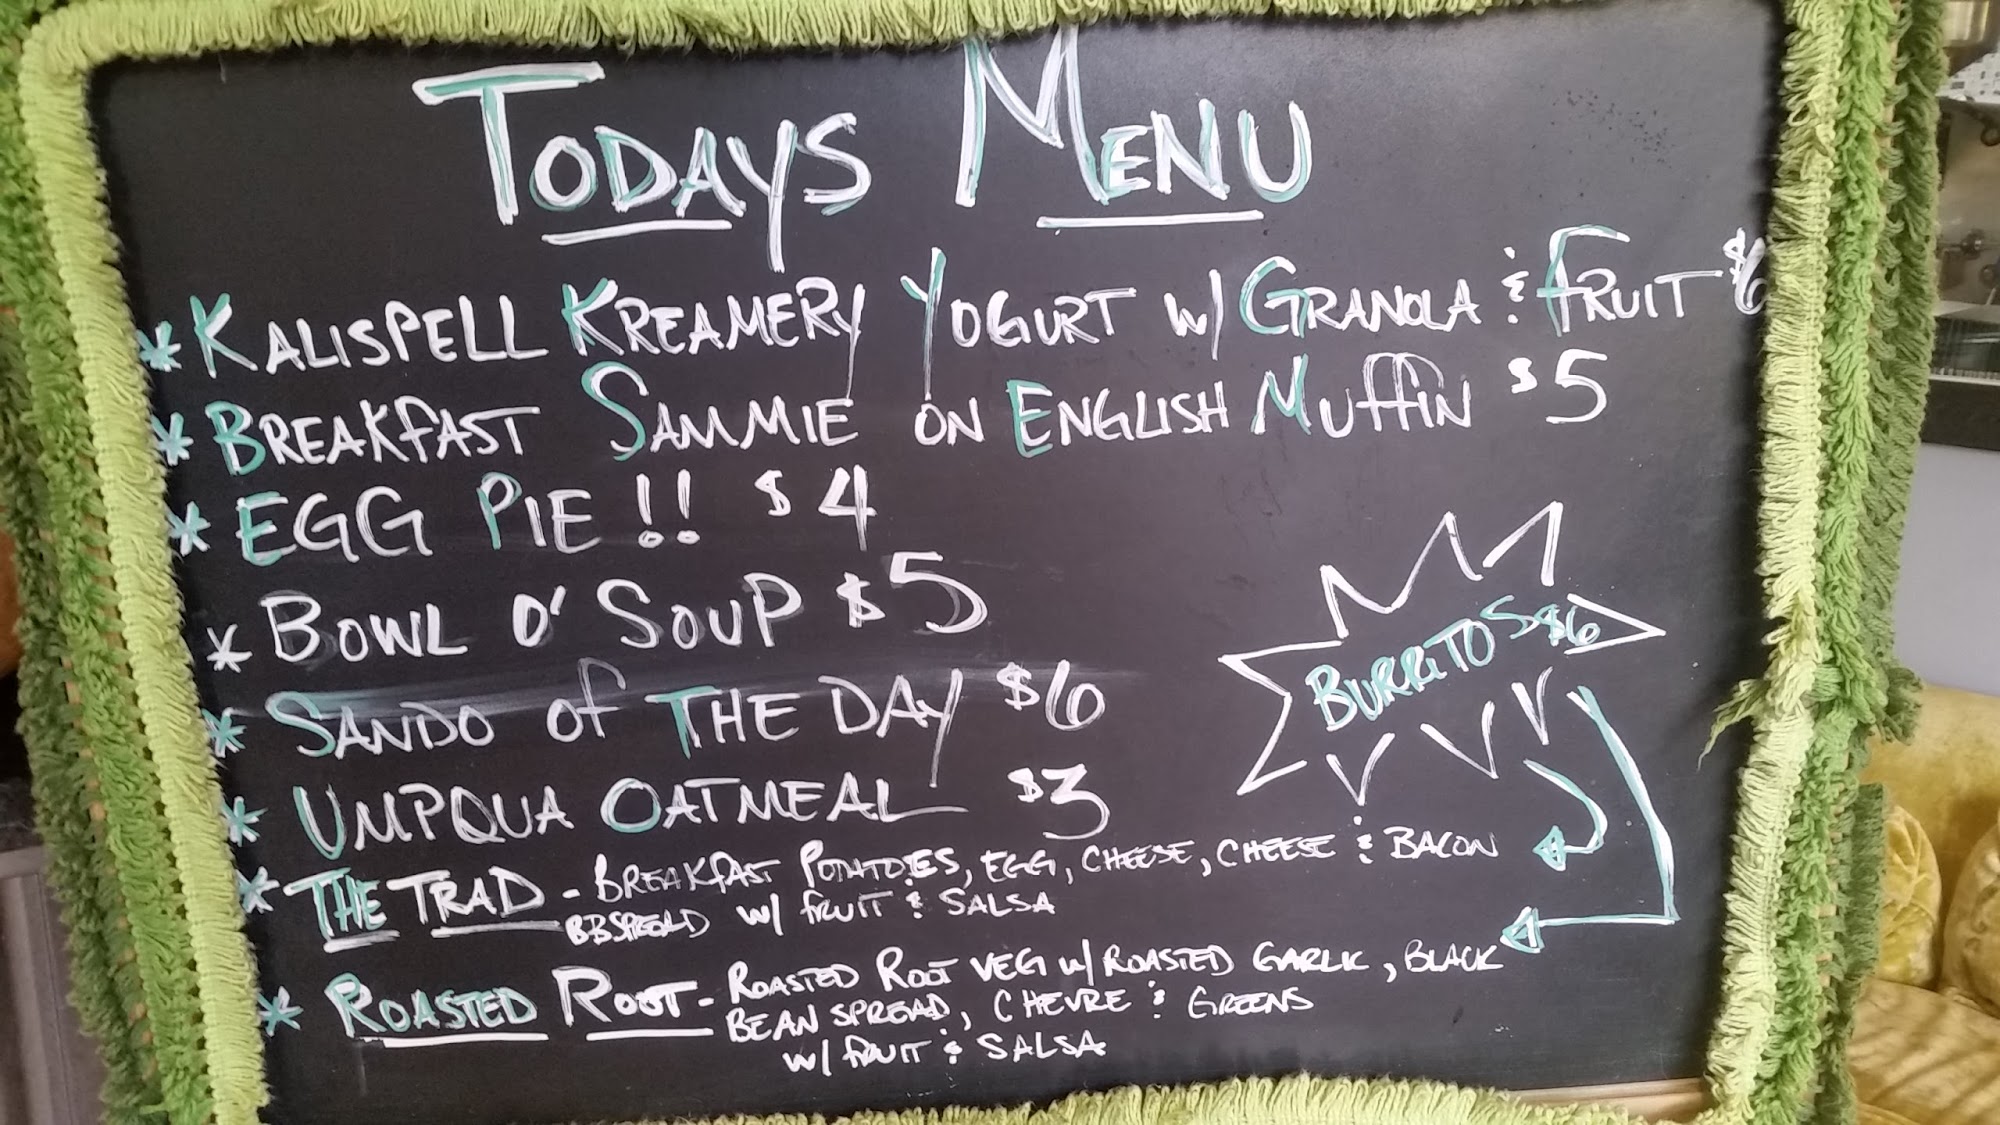 TODAYS MENU
* KALISPELL KREAMERY YOGURT W/ GRANOLA & FRUIT $6
* BREAKFAST SAMMIE ON ENGLISH MUFFIN $5
* EGG PIE !! $4
* BOWL O' SOUP $5
* SANDO OF THE DAY $6
* UMPQUA OATMEAL $3
BURRITOS $6
* THE TRAD - BREAKFAST POTATOES, EGG, CHEESE, CHEESE & BACON
BBSPREAD W/ FRUIT & SALSA
* ROASTED ROOT - ROASTED ROOT VEG W/ ROASTED GARLIC, BLACK
BEAN SPREAD, CHEVRE & GREENS
W/ FRUIT & SALSA